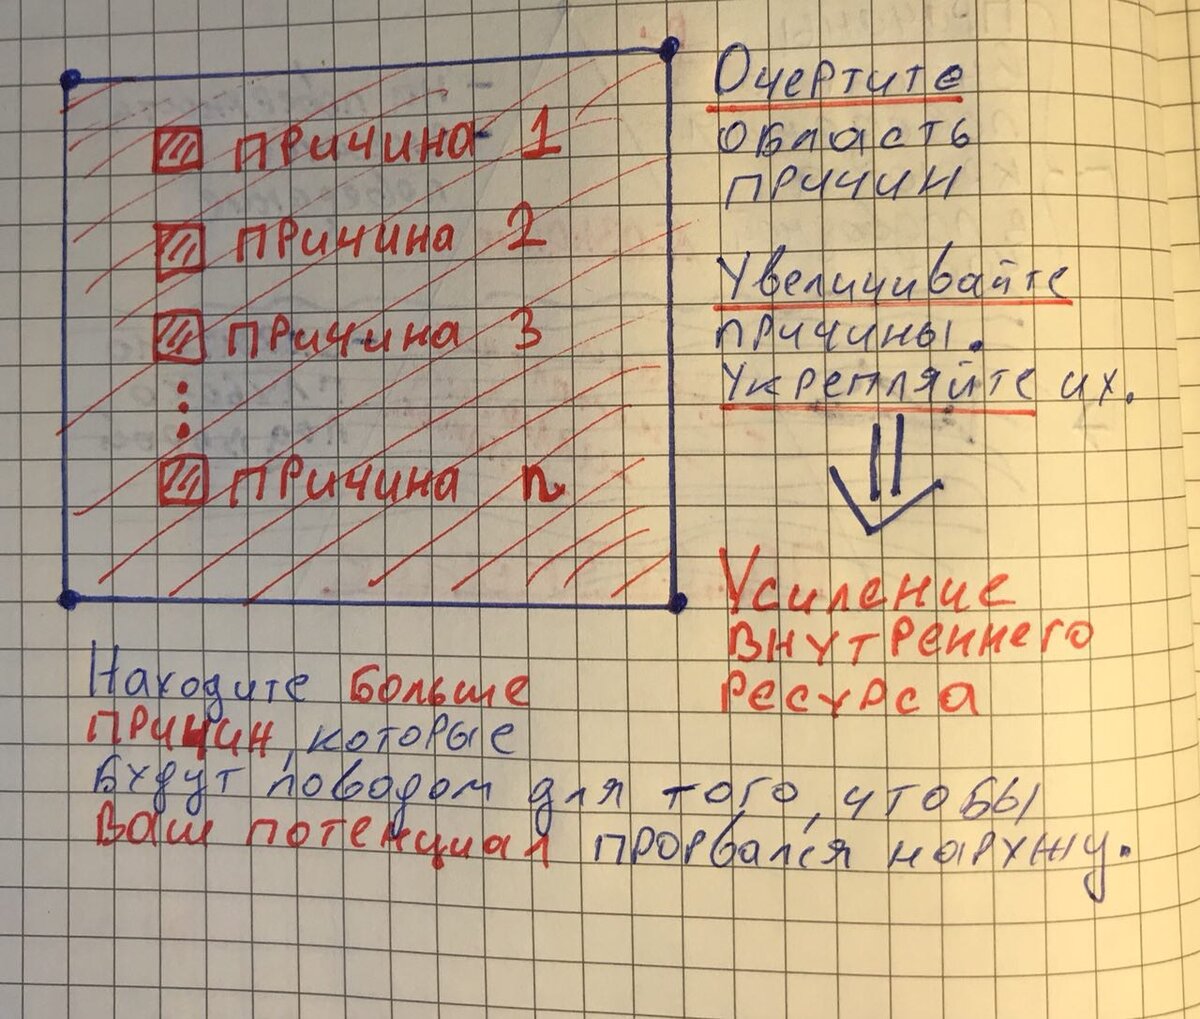 Причина 1
Причина 2
Причина 3
Причина n
Очертите
область
причин
Увеличивайте
причины.
Укрепляйте их.
Усиление
внутреннего
ресурса
Находите больше
причин, которые
будут поводом для того, чтобы
Ваш потенциал прорвался наружу.